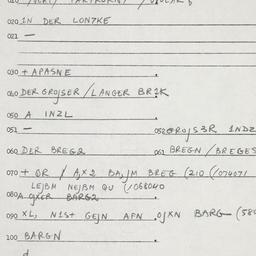 020 IN DER LON7KE
021 —
030 + APASNE
040 DER GROJSER / LANGER BR2K
050 A INZL
051 —
052 GROJS3R INDZ
060 DER BREG2
061 BREGN / BREGES
070 + OR / AJX2 BAJM BREG (210 (/074071
LEJBM NEJBM QU (/068040
080A BARG2
090 XL, N1S+ GEJN AFN .OJXN BARG— (580
100 BARGN